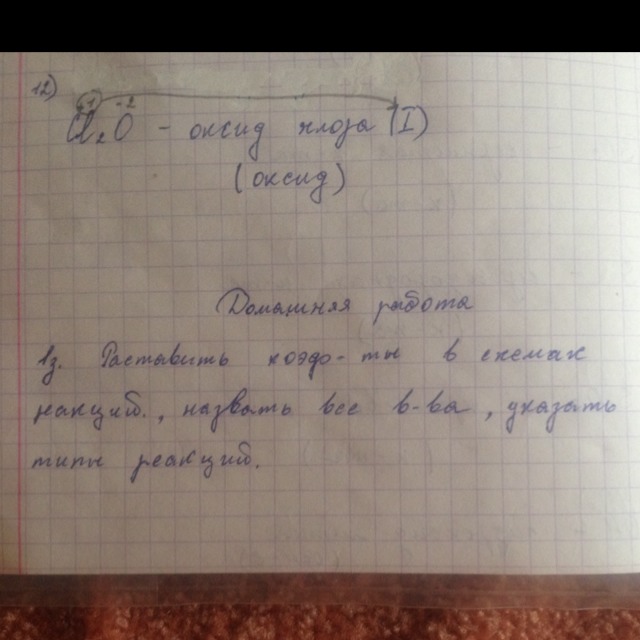 12)
+1 -2
Cl₂O - оксид хлоза (I)
(оксид)
Домашняя работа
1з. Раставить коэф-ты в схемах
накций., назвать все в-ва, указать
типы реакций.